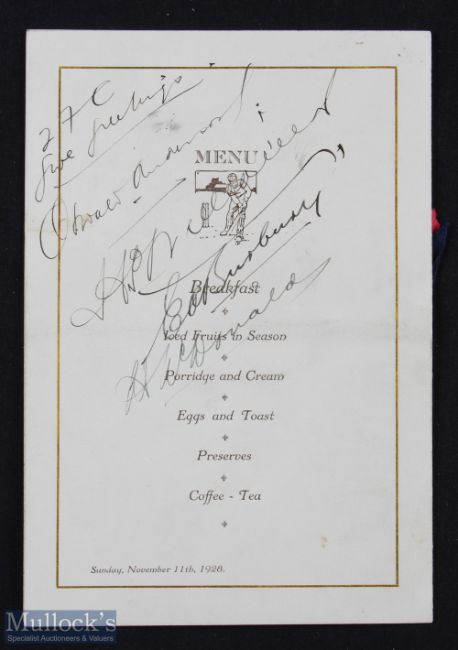 27C
Give Greetings
Oswald Anderson
MENU
Ed Bunbury
Breakfast
H McDonald
Iced Fruits in Season
Porridge and Cream
Eggs and Toast
Preserves
Coffee - Tea
Sunday, November 11th, 1928.
Mullock's
Specialist Auctioneers & Valuers